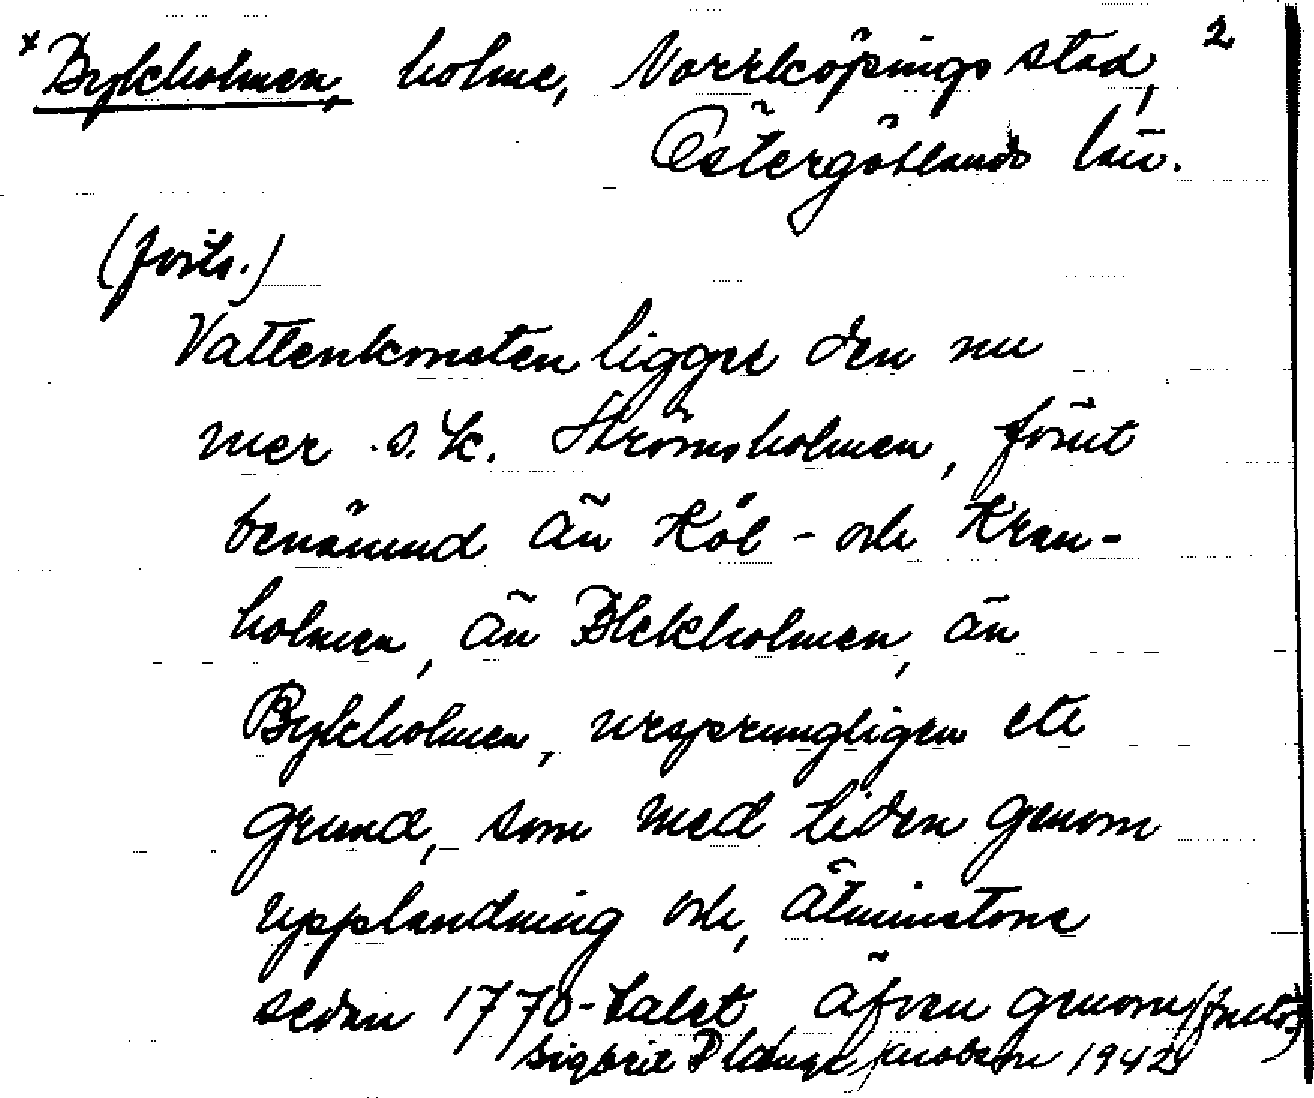 *Bykholmen, holme, Norrköpings stad, 2
Östergötlands län.
(forts.)
Vattenkonsten ligger den nu
mer s.k. Strömsholmen, förut
benämnd än Kål- och Kran-
holmen, än Blekholmen, än
Bykholmen, ursprungligen ett
grund, som med tiden genom
upplandning och, åtminstone
sedan 1770-talet, äfven genom (forts.)
Sigbrit Plænge Jacobson 1942